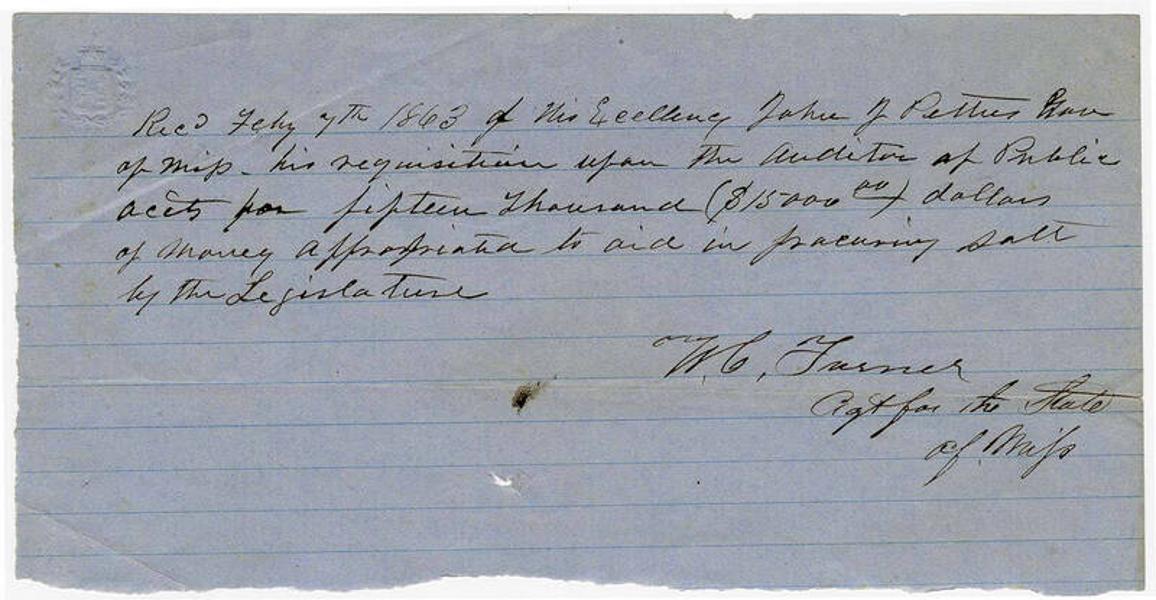 Recd Feby 7th 1863 of His Excellency John J Pettus Gov
of Miss - his requisition upon the Auditor of Public
accts for fifteen Thousand ($15000 00) dollars
of money appropriated to aid in procuring salt
by the Legislature
W. C. Turner
Agt for the State
of Miss